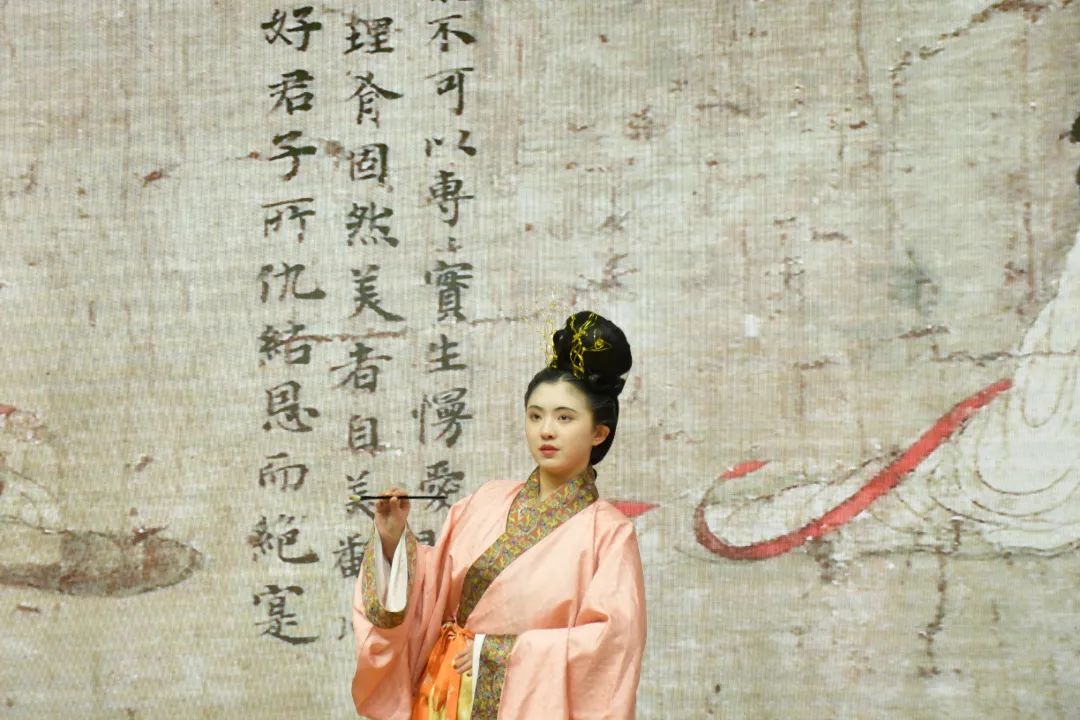 不可以專〻實生慢愛
理有固然美者自美
好君子所仇結恩而絕寔